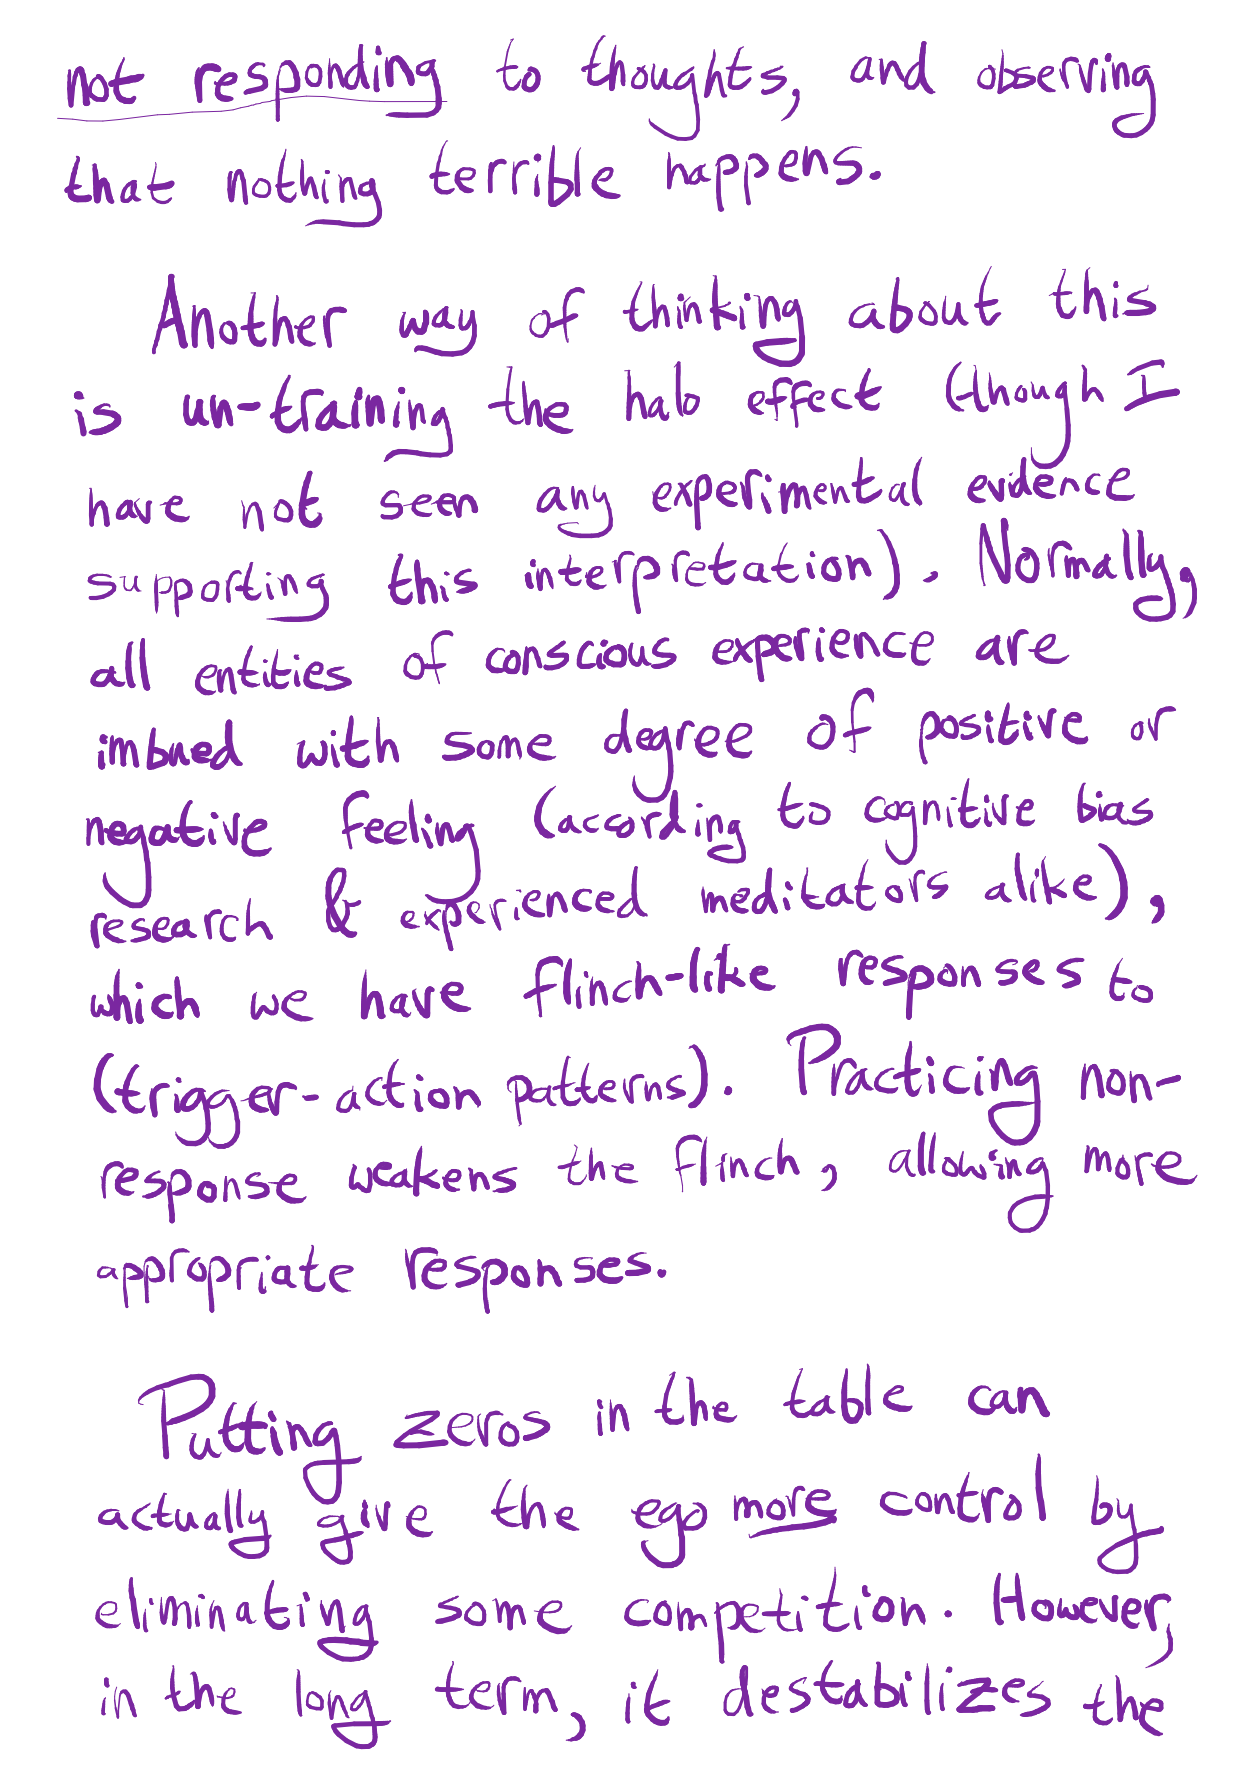 not responding to thoughts, and observing
that nothing terrible happens.
Another way of thinking about this
is un-training the halo effect (though I
have not seen any experimental evidence
supporting this interpretation). Normally,
all entities of conscious experience are
imbued with some degree of positive or
negative feeling (according to cognitive bias
research & experienced meditators alike),
which we have flinch-like responses to
(trigger-action patterns). Practicing non-
response weakens the flinch, allowing more
appropriate responses.
Putting zeros in the table can
actually give the ego more control by
eliminating some competition. However,
in the long term, it destabilizes the